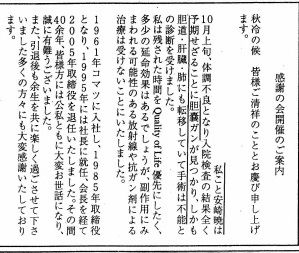 感謝の会開催のご案内
秋冷の候　皆様ご清祥のこととお慶び申し上げ
ます。
私こと安崎暁は
10月上旬、体調不良となり入院検査の結果全く
予期せざることに胆嚢ガンが見つかり、しかも
胆道・肝臓・肺にも転移していて手術は不能と
の診断を受けました。
私は残された時間をQuality of Life優先にしたく、
多少の延命効果はあるでしょうが、副作用にみ
まわれる可能性のある放射線や抗ガン剤による
治療は受けないことにいたしました。
1961年コマツに入社し、1985年取締役
となり、1995年には社長に就任、会長を経て
2005年取締役を退任いたしました。その間
40余年、皆様方には公私ともに大変お世話になり、
誠に有難うございました。
また、引退後も余生を共に楽しく過ごさせて下さ
いました多くの方々にも大変感謝いたしており
ます。